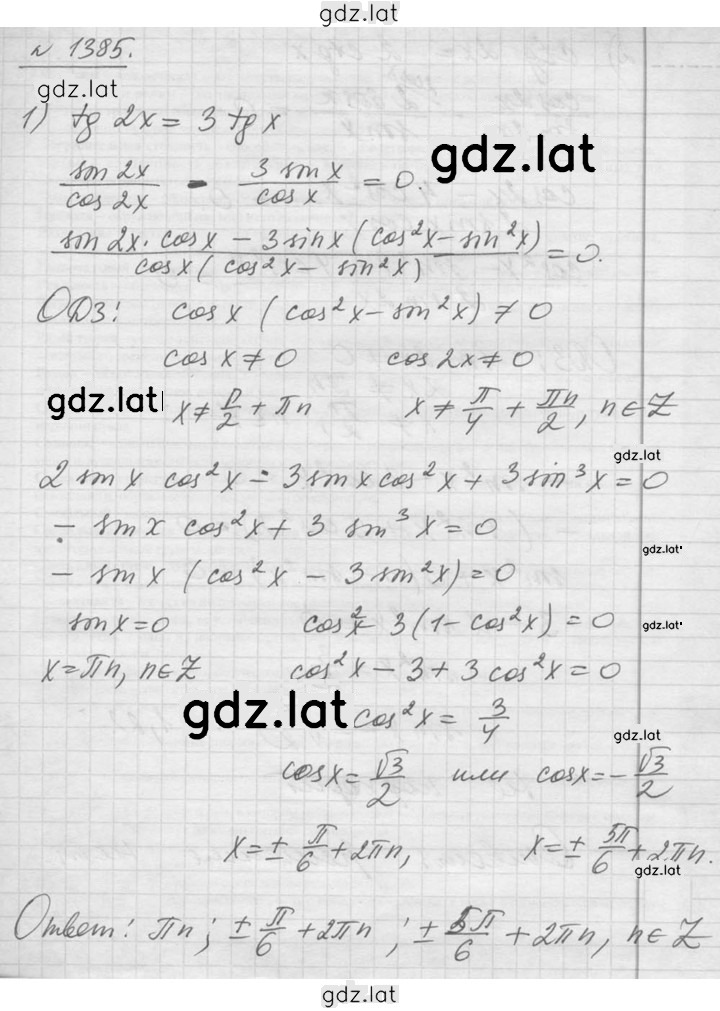 gdz.lat
№ 1385.
gdz.lat
1) tg 2x = 3 tg x
gdz.lat
sin 2x / cos 2x - 3 sin x / cos x = 0.
(sin 2x · cos x − 3 sin x (cos²x − sin²x)) / (cos x (cos²x − sin²x)) = 0.
ОДЗ: cos x (cos²x − sin²x) ≠ 0
cos x ≠ 0 cos 2x ≠ 0
gdz.lat
x ≠ π/2 + πn x ≠ π/4 + πn/2, n ∈ Z
gdz.lat
2 sin x cos²x − 3 sin x cos²x + 3 sin³x = 0
− sin x cos²x + 3 sin³x = 0
gdz.lat
− sin x (cos²x − 3 sin²x) = 0
sin x = 0 cos²x − 3(1 − cos²x) = 0
gdz.lat
x = πn, n ∈ Z cos²x − 3 + 3 cos²x = 0
gdz.lat
cos²x = 3/4
gdz.lat
cos x = √3/2 или cos x = −√3/2
x = ± π/6 + 2πn, x = ± 5π/6 + 2πn.
gdz.lat
Ответ: πn; ± π/6 + 2πn; ± 5π/6 + 2πn, n ∈ Z
gdz.lat